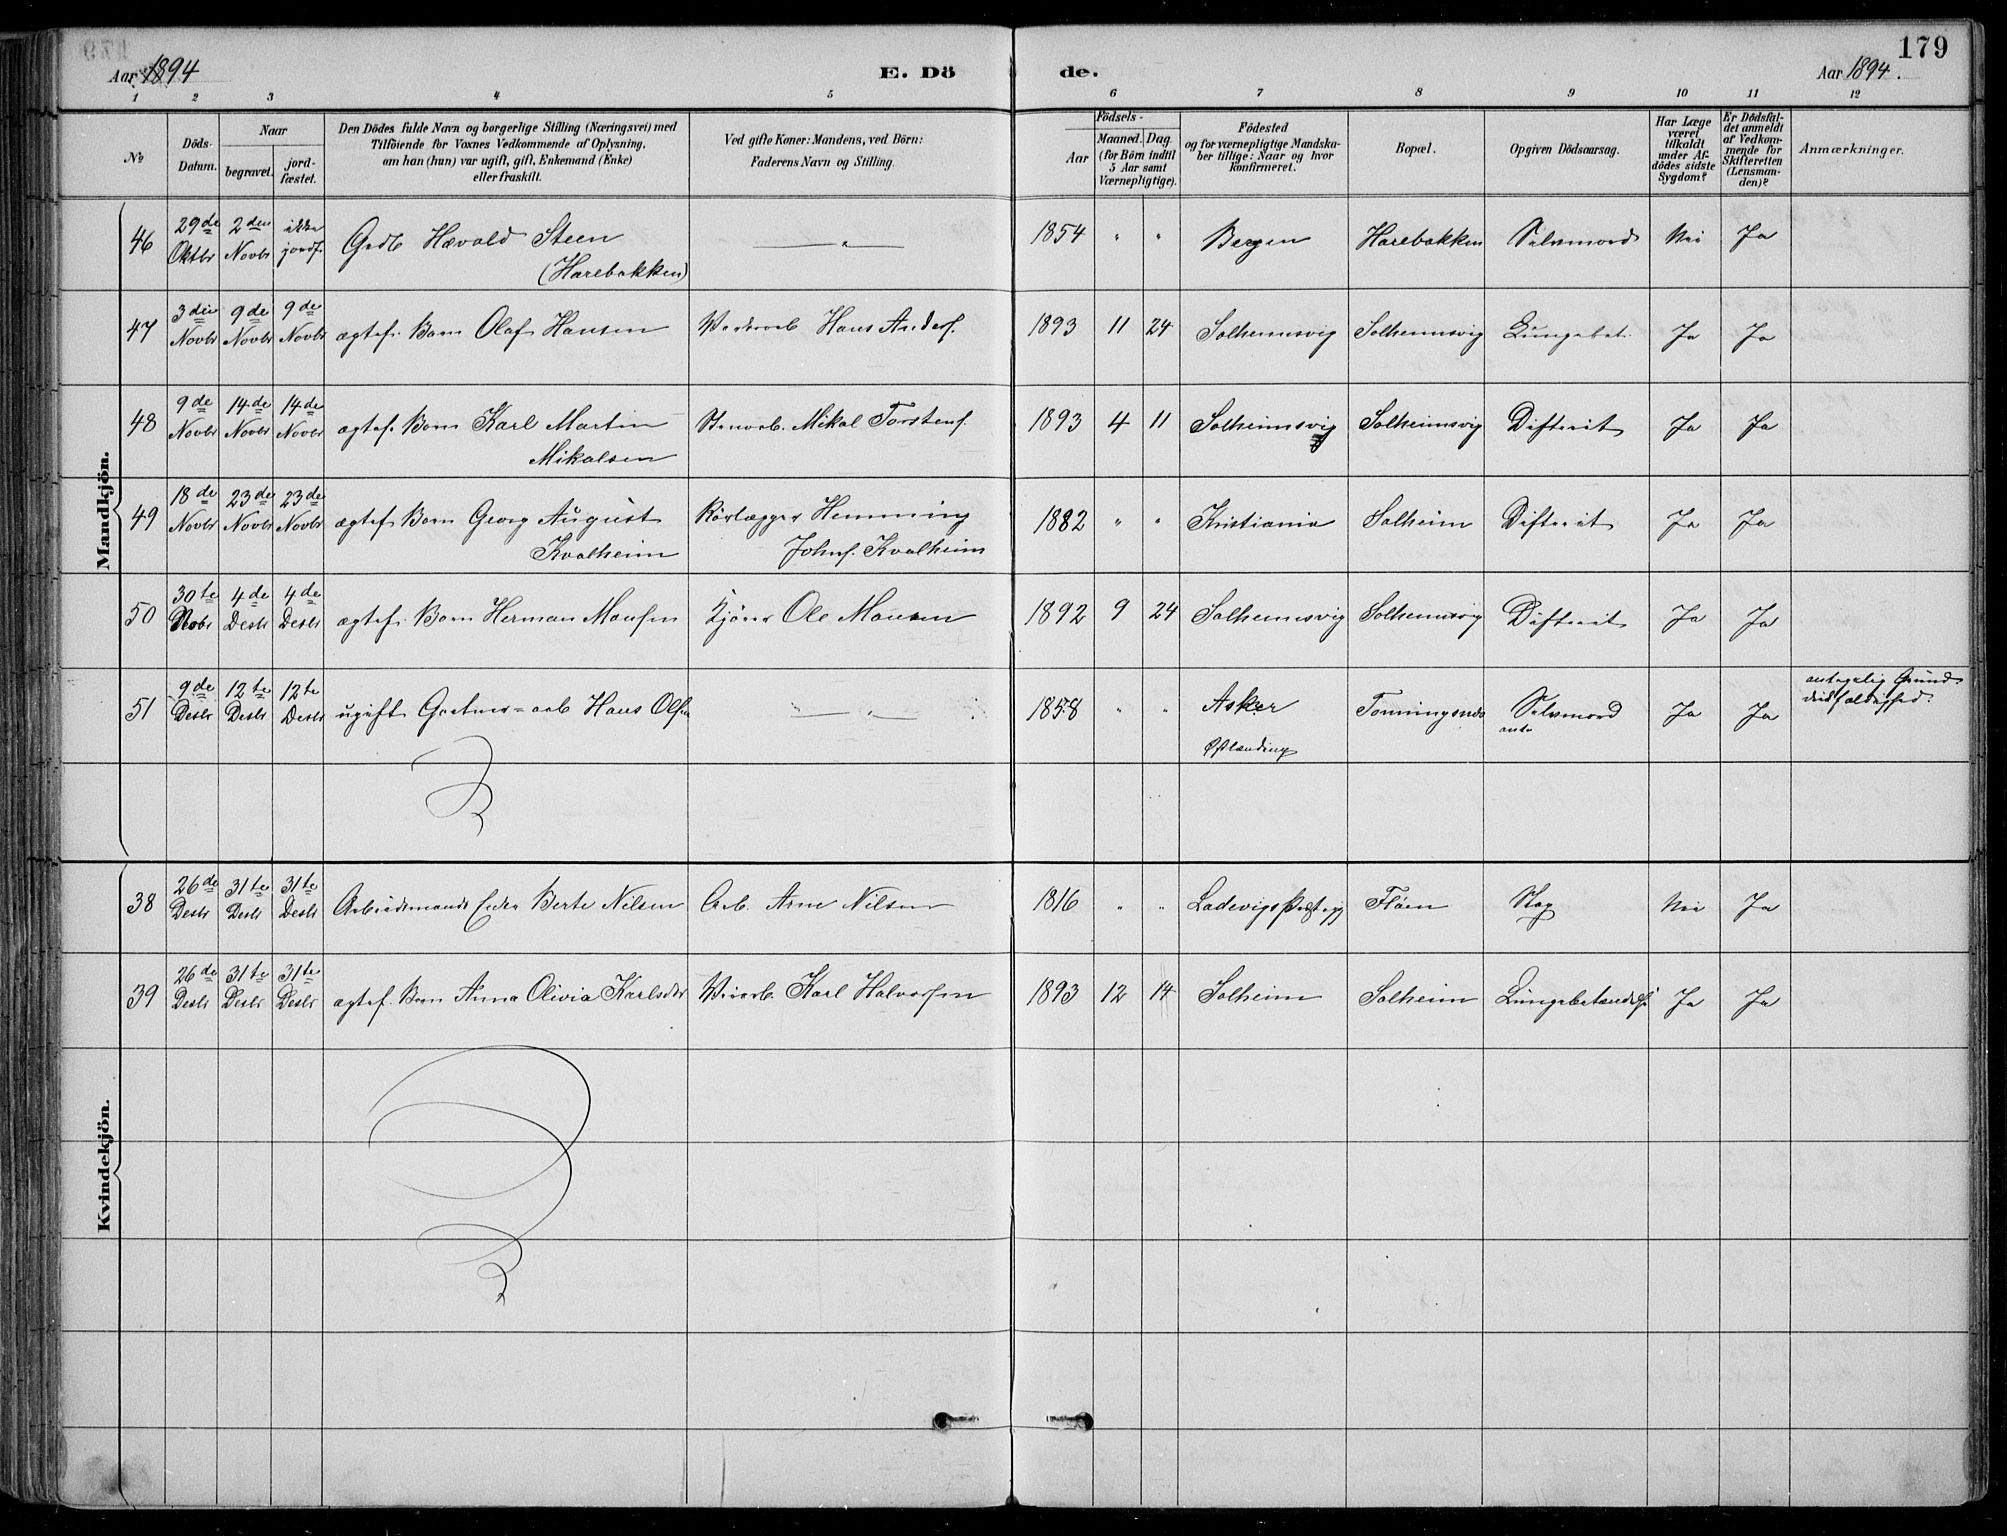 179
Aar 1894
E. Dö
de.
Aar 1894.
1 2 3 4 5 6 7 8 9 10 11 12
No
Döds-Datum.
Naar
begravet.
jord-fæstet.
Den Dödes fulde Navn og borgerlige Stilling (Næringsvei) med
Tilföiende for Voxnes Vedkommende af Oplysning,
om han (hun) var ugift, gift, Enkemand (Enke)
eller fraskilt.
Ved gifte Koner: Mandens, ved Börn:
Faderens Navn og Stilling.
Födsels-
Aar
Maaned. Dag.
(for Börn indtil
5 Aar samt
Værnepligtige).
Födested
og for værnepligtige Mandska-
ber tillige: Naar og hvor
konfirmeret.
Bopæl.
Opgiven Dödsaarsag.
Har Læge
været
tilkaldt
under Af-
dödes sidste
Sygdom?
Er Dödsfal-
det anmeldt
af Vedkom-
mende for
Skifteretten
(Lensman-
den)?
Anmærkninger.
Mandkjön.
46 29de Oktbr 2den Novbr ikke jordf. Gdb Hævald Steen (Harebakken) — " — 1854 " " Bergen Harebakken Selvmord Nei Ja
47 3die Novbr 9de Novbr 9de Novbr ægtef. Barn Olaf Hansen Hans Andersf. 1893 11 24 Solheimsvig Solheimsvig Lungebet. Ja Ja
48 9de Novbr 14de Novbr 14de Novbr ægtef. Barn Karl Martin Mikalsen Stenarb. Mikal Torstensf. 1893 4 11 Solheimsvig Solheimsvig Difterit Ja Ja
49 18de Novbr 23de Novbr 23de Novbr ægtef. Barn Georg August Kvalheim Rörlægger Hemming Johnsf. Kvalheim 1882 " " Kristiania Solheim Difterit Ja Ja
50 30te Novbr 4de Desbr 4de Desbr ægtef. Barn Herman Monsen Kjörer Ole Monsen 1892 9 24 Solheimsvig Solheimsvig Difterit Ja Ja
51 9de Desbr 12te Desbr 12te Desbr ugift Gartner-arb Hans Olsen — " — 1858 " " Asker Østlænding Tonningsnes Selvmord Ja Ja antagelig Grund
Kvindekjön.
38 26de Desbr 31te Desbr 31te Desbr Arbeidsmands Enke Berte Nilsen Arb. Arne Nilsen 1816 " " Ladevigs Præstegj Flöen Slag Nei Ja
39 26de Desbr 31te Desbr 31te Desbr ægtef. Barn Anna Olivia Karlsdtr Karl Halvorsen 1893 12 14 Solheim Solheim Lungebetændelse Ja Ja